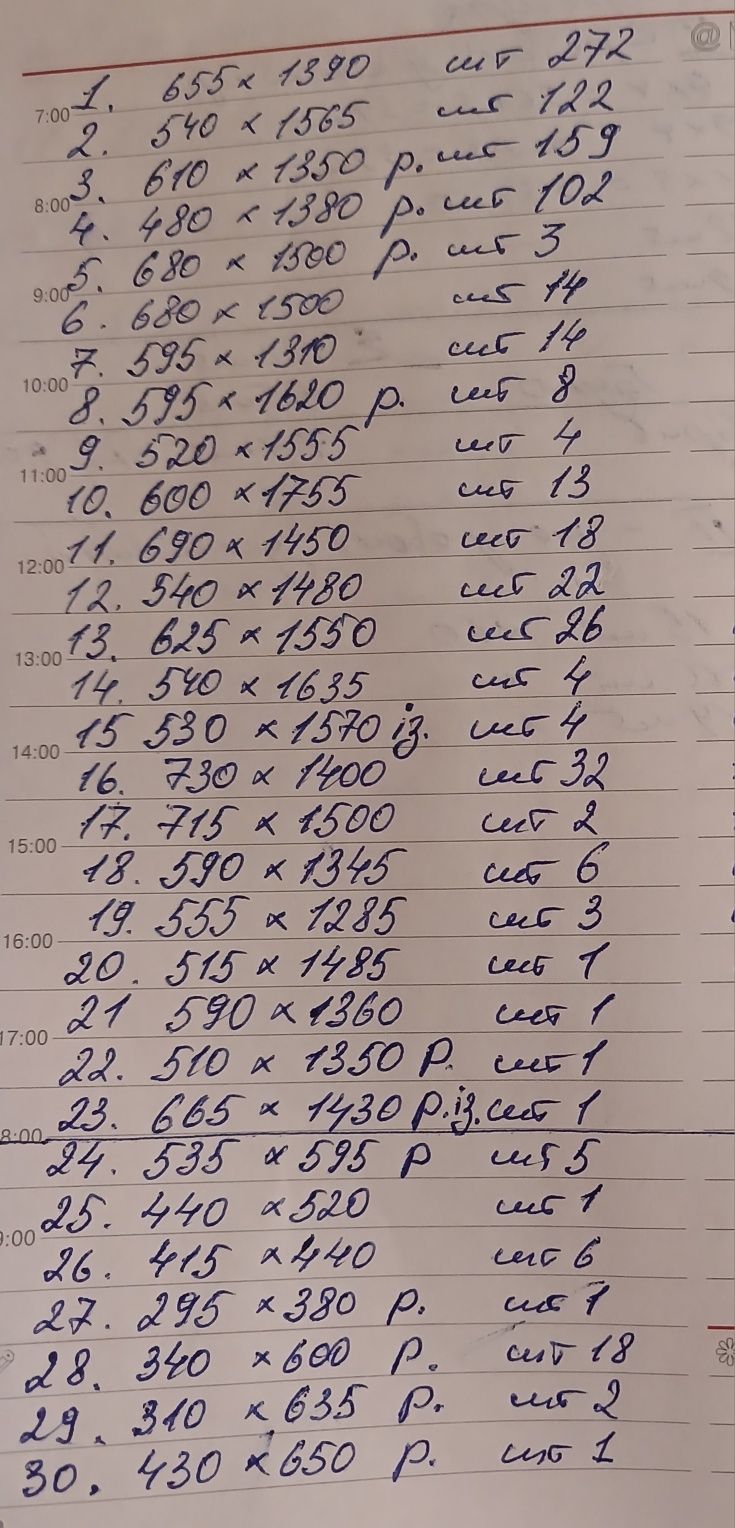 @
7:00 1. 655 × 1390 шт 272
2. 540 × 1565 шт 122
8:00 3. 610 × 1350 р. шт 159
4. 480 × 1380 р. шт 102
9:00 5. 680 × 1500 р. шт 3
6. 680 × 1500 шт 14
10:00 7. 595 × 1310 шт 14
8. 595 × 1620 р. шт 8
11:00 9. 520 × 1555 шт 4
10. 600 × 1755 шт 13
12:00 11. 690 × 1450 шт 18
12. 540 × 1480 шт 22
13:00 13. 625 × 1550 шт 26
14. 540 × 1635 шт 4
14:00 15 530 × 1570 із. шт 4
16. 730 × 1400 шт 32
15:00 17. 715 × 1500 шт 2
18. 590 × 1345 шт 6
16:00 19. 555 × 1285 шт 3
20. 515 × 1485 шт 1
17:00 21 590 × 1360 шт 1
22. 510 × 1350 р. шт 1
8:00 23. 665 × 1430 р. із. шт 1
24. 535 × 595 р шт 5
9:00 25. 440 × 520 шт 1
26. 415 × 440 шт 6
27. 295 × 380 р. шт 1
28. 340 × 600 р. шт 18
29. 310 × 635 р. шт 2
30. 430 × 650 р. шт 1